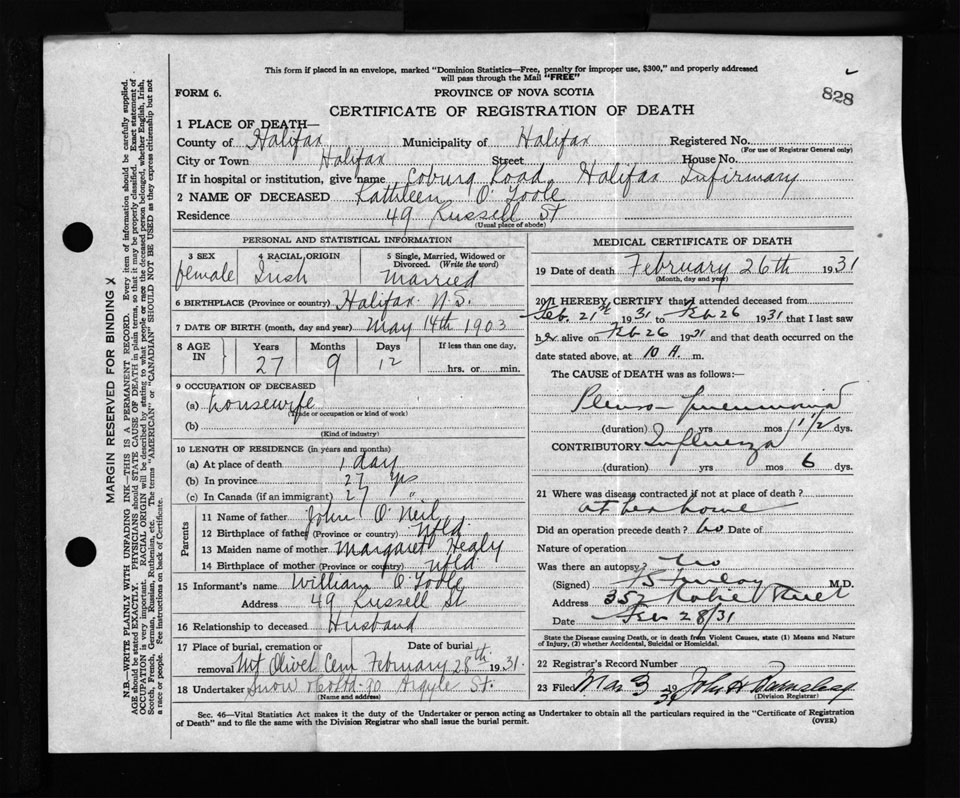 This form if placed in an envelope, marked "Dominion Statistics—Free, penalty for improper use, $300," and properly addressed
will pass through the Mail "FREE"
828
FORM 6.
PROVINCE OF NOVA SCOTIA
CERTIFICATE OF REGISTRATION OF DEATH
1 PLACE OF DEATH—
County of Halifax Municipality of Halifax Registered No.
(For use of Registrar General only)
City or Town Halifax Street House No.
If in hospital or institution, give name Coburg Road Halifax Infirmary
2 NAME OF DECEASED Kathleen O'Toole
Residence 49 Russell St
(Usual place of abode)
PERSONAL AND STATISTICAL INFORMATION
3 SEX 4 RACIAL ORIGIN 5 Single, Married, Widowed or
Divorced. (Write the word)
female Irish Married
6 BIRTHPLACE (Province or country) Halifax N.S.
7 DATE OF BIRTH (month, day and year) May 14th 1903
8 AGE IN Years Months Days If less than one day,
27 9 12 hrs. or min.
9 OCCUPATION OF DECEASED
(a) housewife
(Trade or occupation or kind of work)
(b)
(Kind of industry)
10 LENGTH OF RESIDENCE (in years and months)
(a) At place of death 1 day
(b) In province 27 yrs
(c) In Canada (if an immigrant) 27 "
Parents
11 Name of father John O'Neil
12 Birthplace of father (Province or country) Nfld
13 Maiden name of mother Margaret Healy
14 Birthplace of mother (Province or country) Nfld
15 Informant's name William O'Toole
Address 49 Russell St
16 Relationship to deceased Husband
17 Place of burial, cremation or Date of burial
removal Mt Olivet Cem February 28th 1931
18 Undertaker Snow & Co Ltd 90 Argyle St.
(Name and address)
MEDICAL CERTIFICATE OF DEATH
19 Date of death February 26th 1931
(Month, day and year)
20 I HEREBY CERTIFY that I attended deceased from
Feb. 21st 1931 to Feb 26 1931 that I last saw
her alive on Feb 26 1931 and that death occurred on the
date stated above, at 10 A. m.
The CAUSE of DEATH was as follows:—
Pleuro-pneumonia
(duration) yrs mos 1 1/2 dys.
CONTRIBUTORY Influenza
(duration) yrs mos 6 dys.
21 Where was disease contracted if not at place of death?
at her home
Did an operation precede death? No Date of
Nature of operation
Was there an autopsy? No
(Signed) M.D.
Address 357 Street
Date Feb 28/31
State the Disease causing Death, or in death from Violent Causes, state (1) Means and Nature
of Injury, (2) whether Accidental, Suicidal or Homicidal.
22 Registrar's Record Number
23 Filed Mar 3 1931 John H Barnstead
(Division Registrar)
Sec. 46—Vital Statistics Act makes it the duty of the Undertaker or person acting as Undertaker to obtain all the particulars required in the "Certificate of Registration
of Death" and to file the same with the Division Registrar who shall issue the burial permit.
(OVER)
MARGIN RESERVED FOR BINDING X
N.B.—WRITE PLAINLY WITH UNFADING INK—THIS IS A PERMANENT RECORD. Every item of information should be carefully supplied.
AGE should be stated EXACTLY. PHYSICIANS should STATE CAUSE OF DEATH in plain terms, so that it may be properly classified. Exact statement of
OCCUPATION is very important. RACIAL ORIGIN will be described by stating to what people or race the deceased person belonged, whether English, Irish,
Scotch, French, German, Russian, Ruthenian, etc. The terms "AMERICAN" or "CANADIAN" SHOULD NOT BE USED as they express citizenship but not
a race or people. See instructions on back of Certificate.